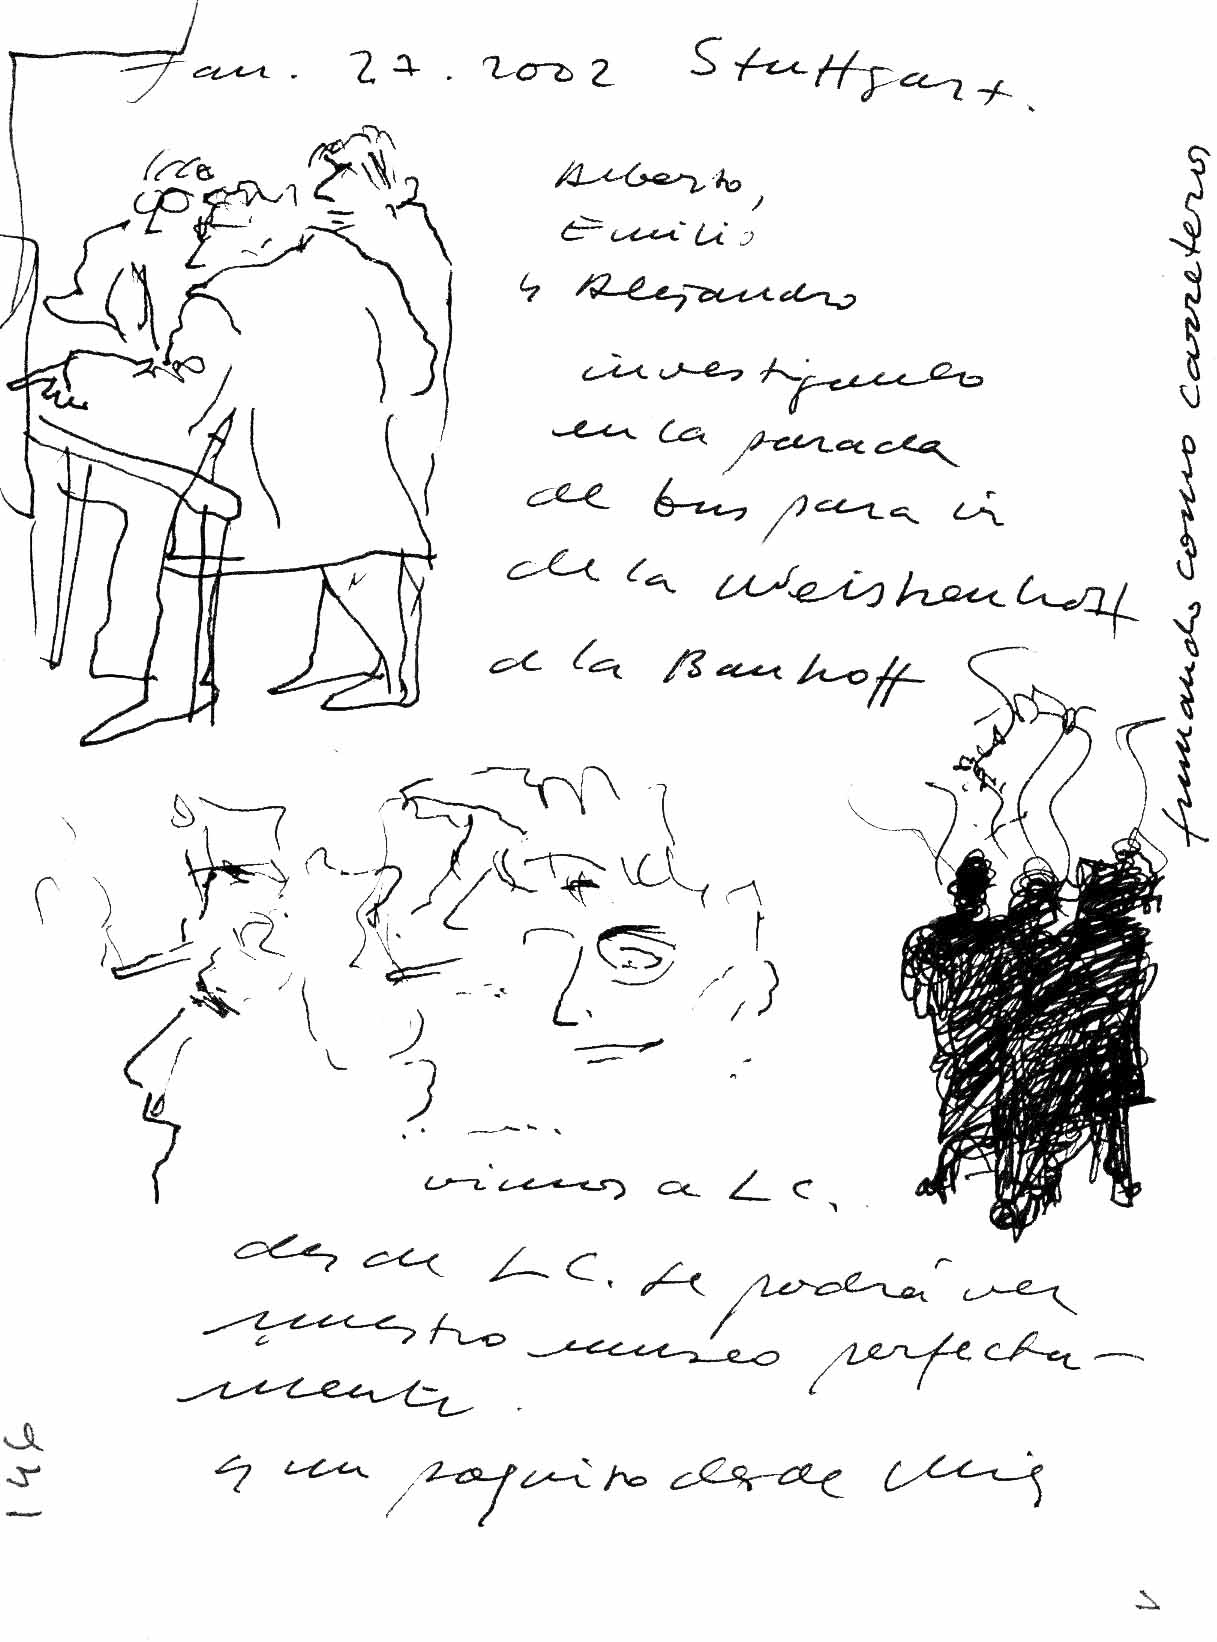 Jan. 27. 2002 Stuttgart.
Alberto,
Emilio
y Alejandro
investigando
en la parada
de bus para ir
de la Weishenhoff
a la Banhoff
fumando como carreteros
vimos a L C.
desde L C. se podrá ver
nuestro museo perfecta-
mente.
y un poquito desde Mies